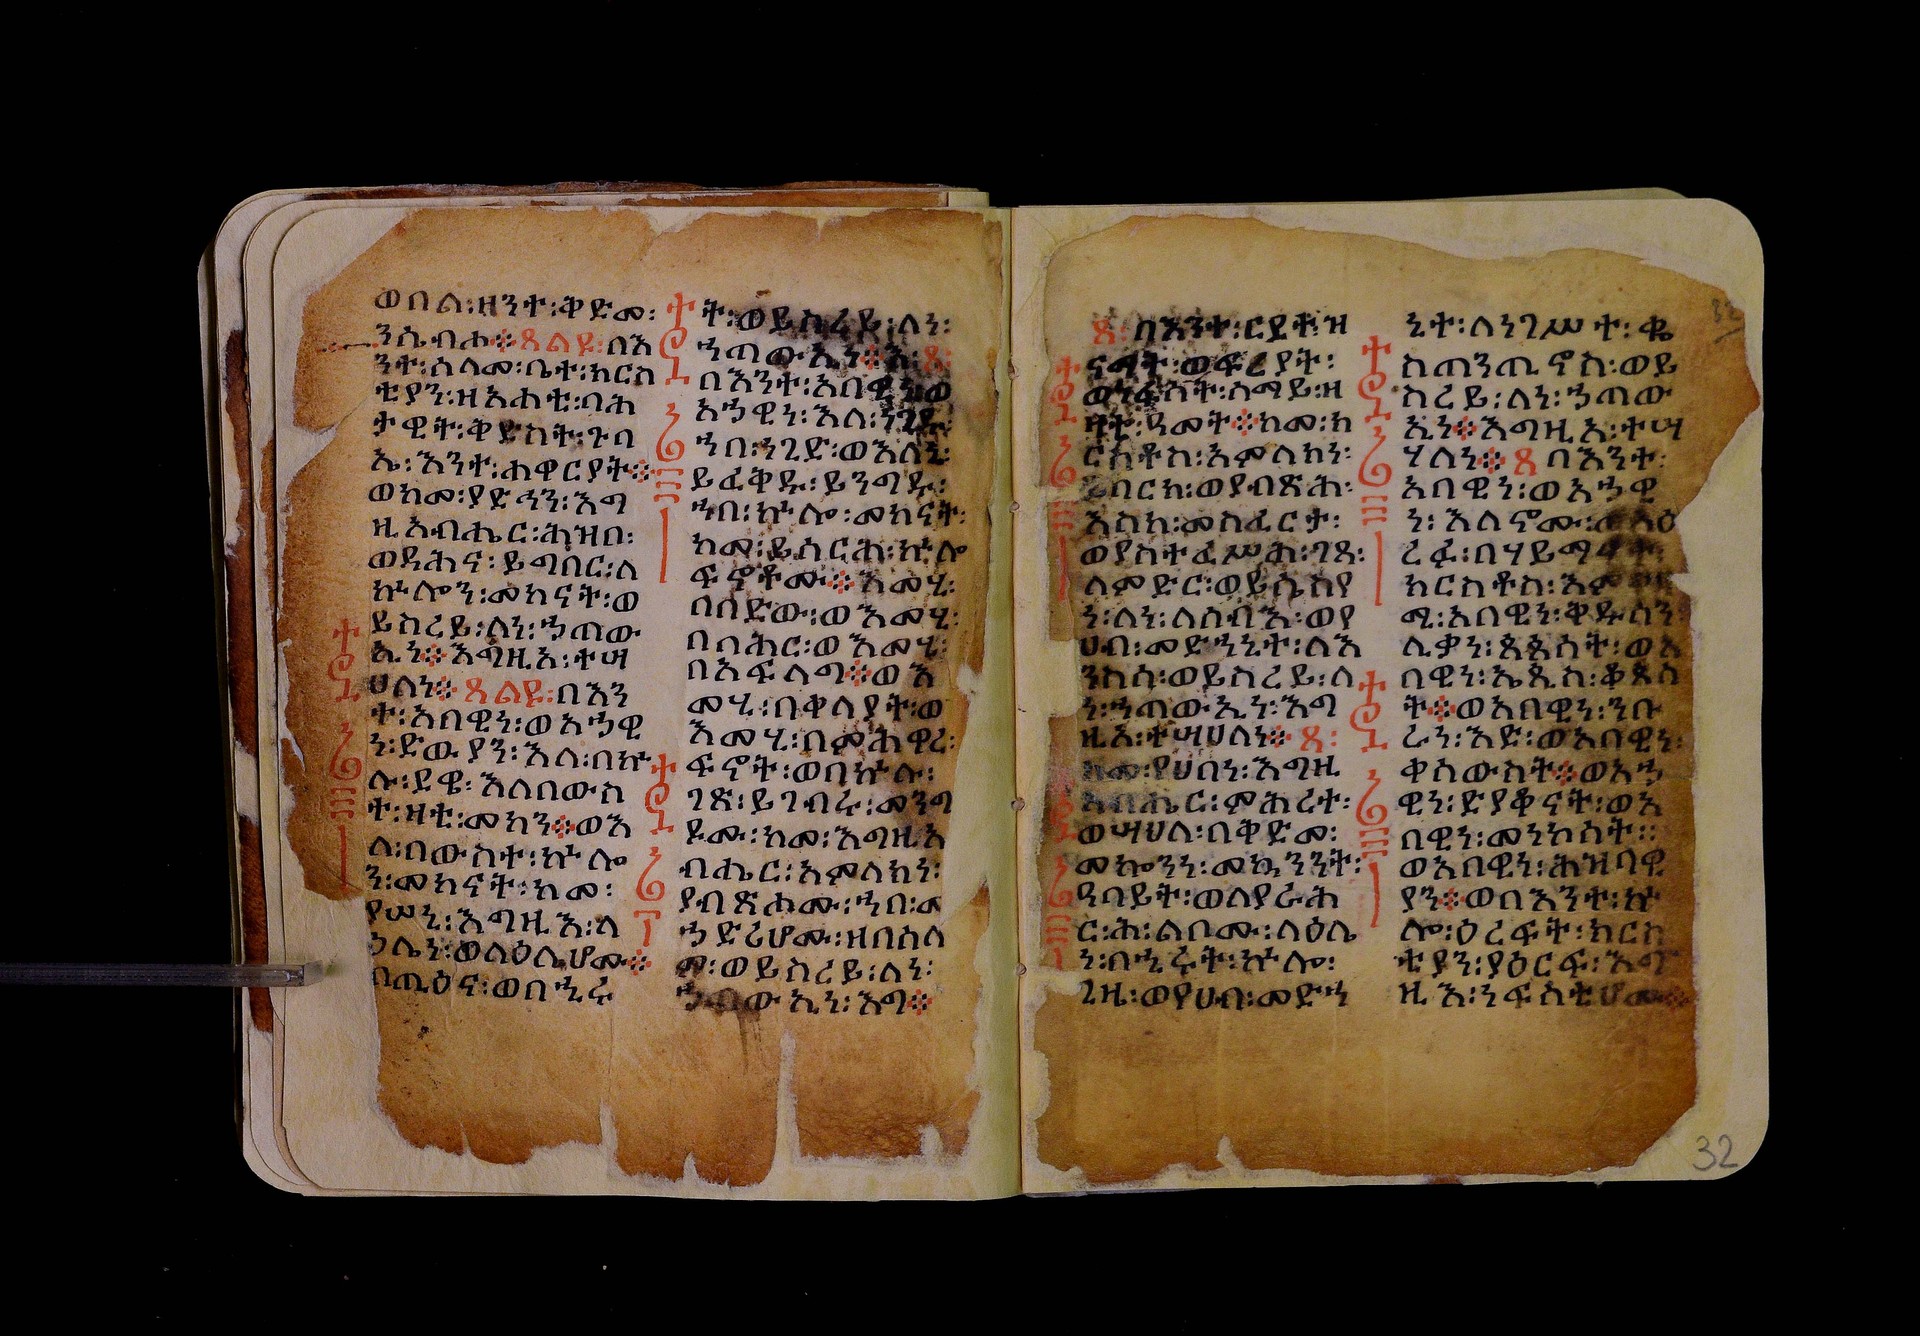 ወበል፡ዘንተ፡ቅድመ፡
ንሴብሐ፨ጸልዩ፡በእ
ንተ፡ሰላመ፡ቤተ፡ክርስ
ቲያን፡ዘአሐቲ፡በሕ
ታዊት፡ቅድስት፡ጉባ
ኤ፡እንተ፡ሐዋርያት፨
ወከመ፡ያድኅን፡እግ
ዚአብሔር፡ሕዝበ፡
ወዳሕና፡ይግበር፡ለ
ኵሎን፡መካናት፡ወ
ይስረይ፡ለነ፡ኃጣው
ኢነ፨እግዚአ፡ተሣ
ሀለነ፨ጸልዩ፡በእን
ተ፡አበዊነ፡ወአኃዊ
ነ፡ድውያን፡እለ፡በኵ
ሉ፡ደዌ፡እለበውስ
ተ፡ዛቲ፡መካን፨ወእ
ለ፡በውስተ፡ኵሎ
ን፡መካናት፡ከመ፡
ያሠኒ፡እግዚእ፡ላ
ዕሌነ፡ወላዕሌሆሙ፨
በጢዕና፡ወበኂሩ
ት፡ወይስረይ፡ለነ፡
ኃጣውኢነ፨እ፡ጸ፡
በእንተ፡አበዊነ፡ወ
አኃዊነ፡እለ፡ነገዱ፡
ኀበ፡ነጊድ፡ወእለኒ፡
ይፈቅዱ፡ይንግዱ፡
ኀበ፡ኵሎ፡መካናት፡
ከመ፡ይሰርሕ፡ኵሎ
ፍኖቶሙ፨እመሂ፡
በበድው፡ወእመሂ፡
በባሕር፡ወእመሂ፡
በአፍላግ፨ወእ
መሂ፡በቀላያት፡ወ
እመሂ፡በምሕዋረ፡
ፍኖት፡ወበኵሉ፡
ገጽ፡ይገብሩ፡መንግ
ዶሙ፡ከመ፡እግዚአ
ብሔር፡አምላክነ፡
ያብጽሖሙ፡ኀበ፡
ኃድሪሆሙ፡ዘበሰላ
ም፡ወይስረይ፡ለነ፡
ኃጣውኢነ፡እግ፨
ጸ፡በእንተ፡ርደቱ፡ዝ
ናማት፡ወፍሬያት፡
ወነፋሳት፡ሰማይ፡ዘ
ዛቲ፡ዓመት፨ከመ፡ክ
ርስቶስ፡አምላክነ፡
ይባርክ፡ወያብጽሕ፡
እስከ፡መስፈርታ፡
ወያስተፈሥሕ፡ገጸ፡
ለምድር፡ወይሴስየ
ነ፡ለነ፡ለሰብእ፡ወየ
ሀብ፡መድኀኒተ፡ለእ
ንስሳ፡ወይስረይ፡ለ
ነ፡ኃጣውኢነ፡እግ
ዚአ፡ተሣሀለነ፨ጸ፡
ከመ፡የሀበነ፡እግዚ
አብሔር፡ምሕረተ፡
ወሣህለ፡በቅድመ፡
መኰንን፡መኳንንት፡
ዓባይት፡ወለያራሕ
ርሕ፡ልቦሙ፡ላዕሌ
ነ፡በኂሩት፡ኵሎ፡
ጊዜ፡ወየሀብ፡መድኀ
ኒተ፡ለነገሥተ፡ቈ
ስጠንጢኖስ፡ወይ
ስረይ፡ለነ፡ኃጣው
ኢነ፨እግዚአ፡ተሣ
ሃለነ፨ጸ፡በእንተ፡
አበዊነ፡ወአኃዊ
ነ፡እለኖሙ፡ወአዕ
ረፉ፡በሃይማኖተ፡
ክርስቶስ፡
ሚ፡አበዊነ፡ቅዱሳን፡
ሊቃነ፡ጳጳሳት፡ወአ
በዊነ፡ኤጲስ፡ቆጶሳ
ት፨ወአበዊነ፡ንቡ
ራነ፡እድ፡ወአበዊነ፡
ቀሳውስት፨ወአኃ
ዊነ፡ድያቆናት፡ወአ
በዊነ፡መነኮሳት፡፡
ወአበዊነ፡ሕዝባዊ
ያን፨ወበእንተ፡ኵ
ሎ፡ዕረፍት፡ክርስ
ቲያን፡ያዕርፍ፡እግ
ዚእ፡ነፍሳቲሆሙ፨
32